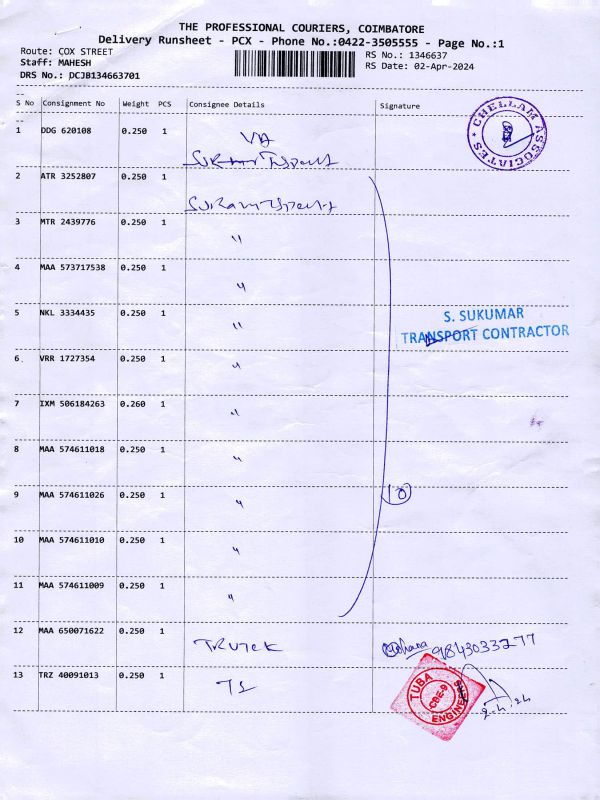 THE PROFESSIONAL COURIERS, COIMBATORE
Delivery Runsheet - PCX - Phone No.:0422-3505555 - Page No.:1
Route: COX STREET
RS No.: 1346637
Staff: MAHESH
RS Date: 02-Apr-2024
DRS No.: DCJB134663701
S No Consignment No Weight PCS Consignee Details Signature
1 DDG 620108 0.250 1
CHELLAM ASSOCIATES
2 ATR 3252807 0.250 1
3 MTR 2439776 0.250 1 "
4 MAA 573717538 0.250 1 "
5 NKL 3334435 0.250 1 "
S. SUKUMAR
TRANSPORT CONTRACTOR
6 VRR 1727354 0.250 1 "
7 IXM 506184263 0.260 1 "
8 MAA 574611018 0.250 1 "
9 MAA 574611026 0.250 1 "
10
10 MAA 574611010 0.250 1 "
11 MAA 574611009 0.250 1 "
12 MAA 650071622 0.250 1 9843033277
13 TRZ 40091013 0.250 1
TUBA ENGINEERS
CBE-9
2.4.24